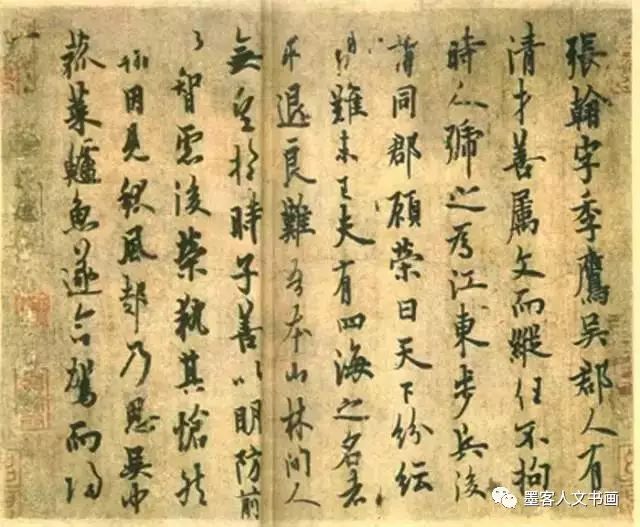 張翰字季鷹吳郡人有
清才善屬文而縱任不拘
時人號之為江東步兵後
謂同郡顧榮曰天下紛紜
禍難未已夫有四海之名者
求退良難吾本山林間人
無望於時子善以明防前
以智慮後榮執其愴然
翰因見秋風起乃思吳中
菰菜鱸魚遂命駕而歸
墨客人文书画